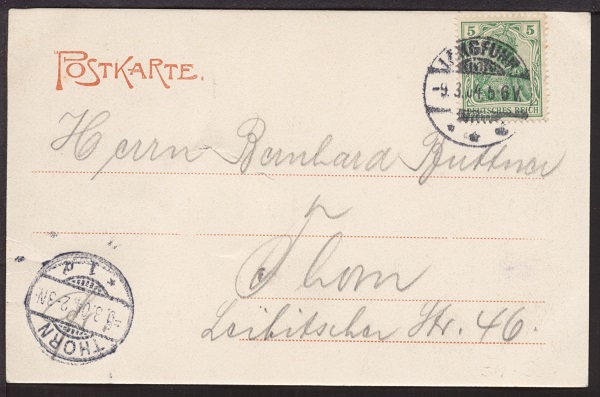 POSTKARTE.
5 5
DEUTSCHES REICH
LANGFUHR
-9.3.04. 6-6V.
Herrn Bernhard Buttner
Thorn
Leibitscher Str. 46.
THORN
1 d